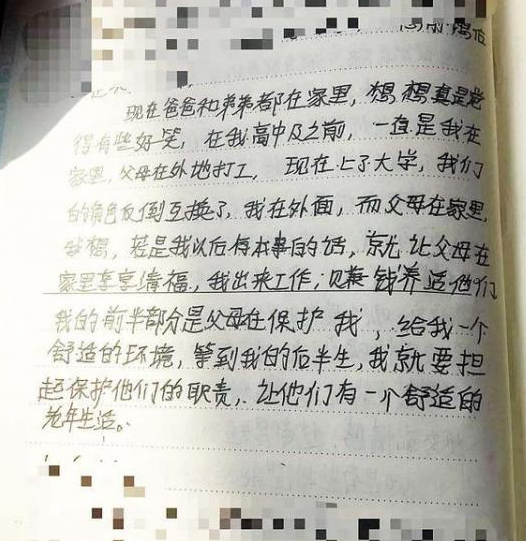 现在爸爸和弟弟都在家里，想想真是觉
得有些好笑，在我高中及之前，一直是我在
家里，父母在外地打工，现在上了大学，我们
的角色反倒互换了，我在外面，而父母在家里，
我想，若是我以后有本事的话，就让父母在
家里享享清福，我出来工作，赚钱养活他们
我的前半部分是父母在保护我，给我一个
舒适的环境，等到我的后半生，我就要担
起保护他们的职责，让他们有一个舒适的
老年生活。